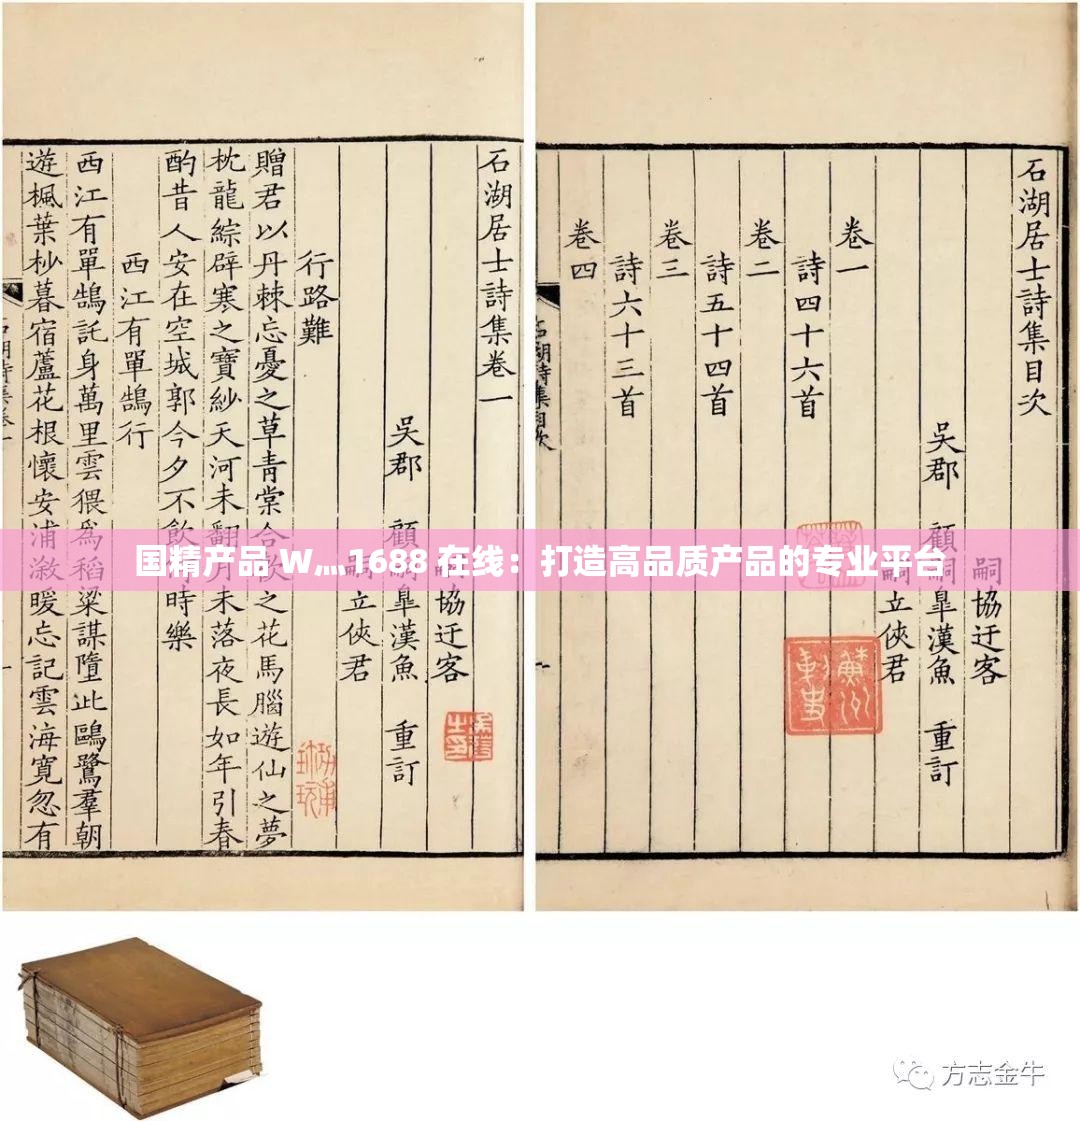 石湖居士詩集目次
嗣協迂客
吳郡 顧嗣皐漢魚 重訂
嗣立俠君
卷一
詩四十六首
卷二
詩五十四首
卷三
詩六十三首
卷四
石湖詩集目次
石湖居士詩集卷一
協迂客
吳郡 顧嗣皐漢魚 重訂
嗣立俠君
行路難
贈君以丹棘忘憂之草青棠合歡之花馬腦遊仙之夢
枕龍綜辟寒之寶紗天河未翻月未落夜長如年引春
酌昔人安在空城郭今夕不飲時樂
西江有單鵠行
西江有單鵠託身萬里雲猥爲稻粱謀墮此鷗鷺羣朝
遊楓葉杪暮宿蘆花根懷安浦漵暖忘記雲海寬忽有
石湖詩集卷一
国精产品 W灬1688 在线：打造高品质产品的专业平台
方志金牛